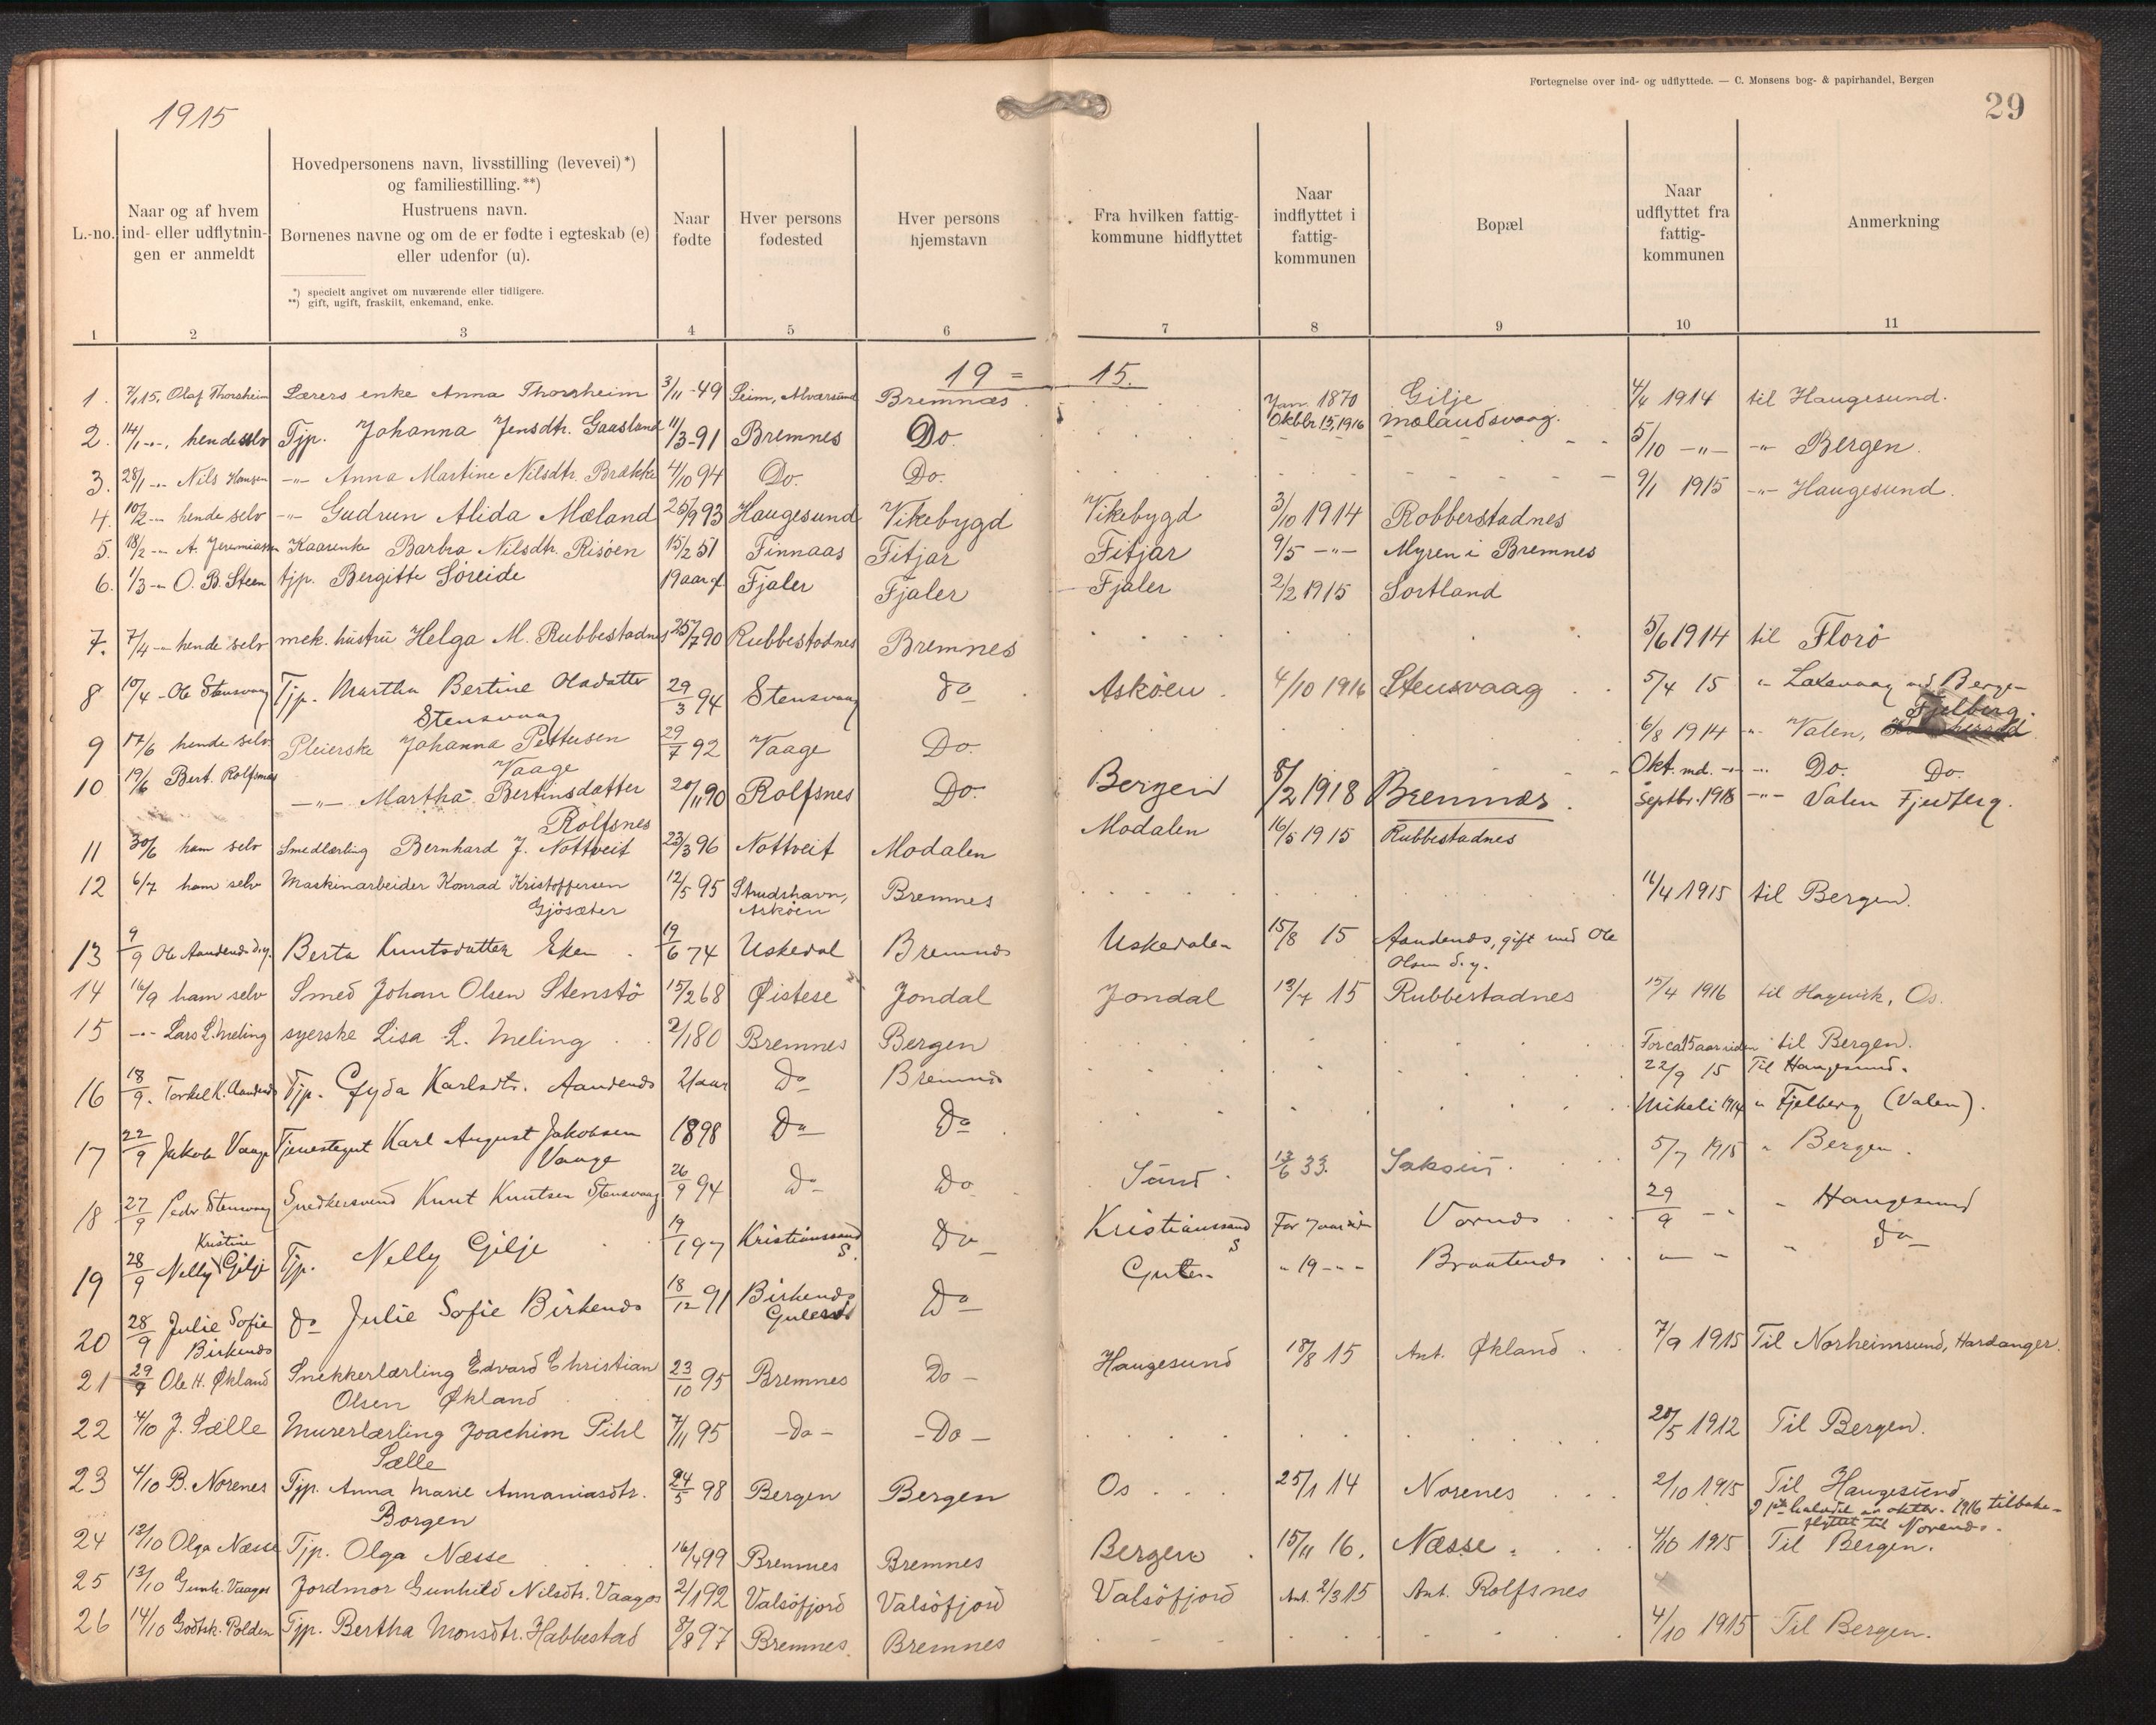 Fortegnelse over ind- og udflyttede. — C. Monsens bog- & papirhandel, Bergen
29
1915
L.-no.
Naar og af hvem ind- eller udflytningen er anmeldt
Hovedpersonens navn, livsstilling (levevei)*) og familiestilling.**)
Hustruens navn.
Børnenes navne og om de er fødte i egteskab (e) eller udenfor (u).
*) specielt angivet om nuværende eller tidligere.
**) gift, ugift, fraskilt, enkemand, enke.
Naar fødte
Hver persons fødested
Hver persons hjemstavn
Fra hvilken fattigkommune hidflyttet
Naar indflyttet i fattigkommunen
Bopæl
Naar udflyttet fra fattigkommunen
Anmerkning
1 2 3 4 5 6 7 8 9 10 11
19 = 15.
1. 7/1 15, Olaf Thorsheim Lærers enke Anna Thorsheim 3/11-49 Seim, Alversund Bremnæs Jan. 1870 Gilje 4/4 1914 til Haugesund.
Oktbr 15, 1916 Mælandsvaag.
2. 14/1 -"-, hende selv Tjp. Johanna Jensdtr. Gaasland 11/3-91 Bremnes Do. 5/10 -"- -"- Bergen.
3. 28/1 -"- Nils Hansen -"- Anna Martine Nilsdtr. Brække 4/10 94 Do. Do. 9/1 1915 -"- Haugesund.
4. 10/2 -"- hende selv -"- Gudrun Alida Mæland 25/9 93 Haugesund Vikebygd Vikebygd 3/10 1914 Robberstadnes
5. 18/2 -"- A. Jeremiassen Kaarenke Barbra Nilsdtr. Risöen 15/2 51 Finnaas Fitjar Fitjar 9/5 -"- Myren i Bremnes
6. 1/3 -"- O. B. Steen tjp. Bergitte Söreide 19 aar gl Fjaler Fjaler Fjaler 2/2 1915 Sortland
7. 7/4 -"- hende selv mek. hustru Helga M. Rubbestadnes 25/7 90 Rubbestadnes Bremnes 5/6 1914 til Florö
8 10/4 - Ole Stensvaag Tjp. Martha Bertine Olsdatter 29/3 94 Stensvaag do Asköen. 4/10 1916 Stensvaag 5/4 15 " Laxevaag ved Bergen
Stensvaag
Fjelberg.
9 17/6 hende selv. Pleierske Johanna Pettersen 29/7 92 Vaage Do. 6/8 1914 -"- Valen,
Vaage
10 19/6 Bert. Rolfsnes -"- Martha Bertinsdatter 20/11 90 Rolfsnes Do. Bergen 8/2 1918 Bremnæs. Okt. md. -"- -"- Do. Do.
Septbr. 1918 -"- Valen Fjelberg.
Rolfsnes
11 30/6 ham selv Smedlærling Bernhard J. Nottveit 23/3 96 Nottveit Modalen Modalen 16/5 1915 Rubbestadnes
12 6/7 ham selv Maskinarbeider Konrad Kristoffersen 12/5 95 Strudshavn, Bremnes 11/4 1915 til Bergen.
Gjösæter Asköen
13 9/9 Ole Aandenes d.y. Berta Knutsdatter Eken 19/6 74 Uskedal Bremnes Uskedalen 15/8 15 Aandenes, gift med Ole
Olsen d.y.
14 16/9 ham selv Smed Johan Olsen Stenstö 15/2 68 Øistese Jondal Jondal 13/7 15 Rubbestadnes 15/4 1916 til Hagevik, Os.
15 -"- Lars L. Meling syerske Lisa L. Meling 2/1 80 Bremnes Bergen For ca 15 aar siden til Bergen.
16 18/9. Torkel K. Aandenes Tjp. Gyda Karlsdtr. Aandenes 21 aar Do Bremnes 22/9 15 Til Haugesund.
17 22/9 Jakob Vaage Tjenestegut Karl August Jakobsen 1898 Do Do Mikeli 1914 " Fjelberg (Valen).
Vaage
18 27/9 Peder Stensvaag Snedkersvend Knut Knutsen Stensvaag 26/9 94 Do Do Sund. 13/6 33. 5/7 1915 " Bergen.
19 28/9 Nelly Kristine Gilje Tjp. Nelly Gilje 19/1 97 Kristianssand S. Do Kristianssand S For 7 aar siden Vornes 29/9 -"- " Haugesund
20 28/9 Julie Sofie Birkenes do Julie Sofie Birkenes 18/12 91 Birkenes Gulen Do Gulen " 19 -"- Braatenes -"- " do
21 29/9 Ole H. Økland Snekkerlærling Edvard Christian 23/10 95 Bremnes Do - Haugesund 18/8 15 Ant. Økland 7/9 1915 Til Norheimsund, Hardanger.
Olsen Økland
22 4/10 J. Sælle Murerlærling Joachim Pihl 7/11 95 - Do - - Do - 20/5 1912 Til Bergen.
Sælle
23 4/10 B. Norenes Tjp. Anna Marie Annaniasdtr. 24/5 98 Bergen Bergen Os 25/1 14 Norenes 2/10 1915 Til Haugesund
Borgen oktbr. 1916 tilbakeflyttet til Norenes.
24 13/10 Olga Næsse Tjp. Olga Næsse 16/4 99 Bremnes Bremnes Bergen 15/11 16. Næsse. 4/10 1915 Til Bergen.
25 13/10 Gunh. Vaagos Jordmor Gunhild Nilsdtr. Vaagos 2/1 92 Valsöfjord Valsöfjord Valsöfjord Ant. 2/3 15 Ant. Rolfsnes
26 14/10 Godtsk. Polden Tjp. Bertha Monsdtr. Habbestad 8/8 97 Bremnes. Bremnes 4/10 1915 Til Bergen.